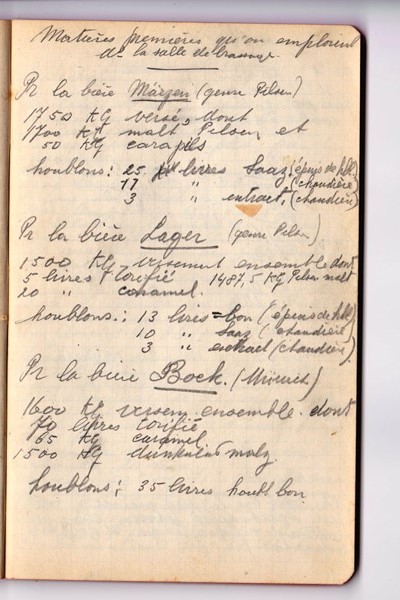 Matières premières qu'on emploient
de la salle de brassage
Pr la bière Märzen (genre Pilsen)
1750 KG versé, dont
1700 KG malt Pilsen et
50 KG carapils
houblons: 25 livres Saaz (épuis de hbl.)
17 " (chaudière)
3 " extrait. (chaudière)
Pr la bière Lager (genre Pilsen)
1500 KG versement ensemble dont
5 livres torifié 1487,5 KG Pilsen malt
20 " caramel.
houblons: 13 livres bon (épuis de hbl)
10 " Saaz (chaudière
3 " extrait (chaudière)
Pr la bière Bock. (Munich)
1600 KG versem. ensemble. dont
70 livres torifié
65 KG caramel
1500 KG dunkles malz.
houblons: 35 livres houbl bon